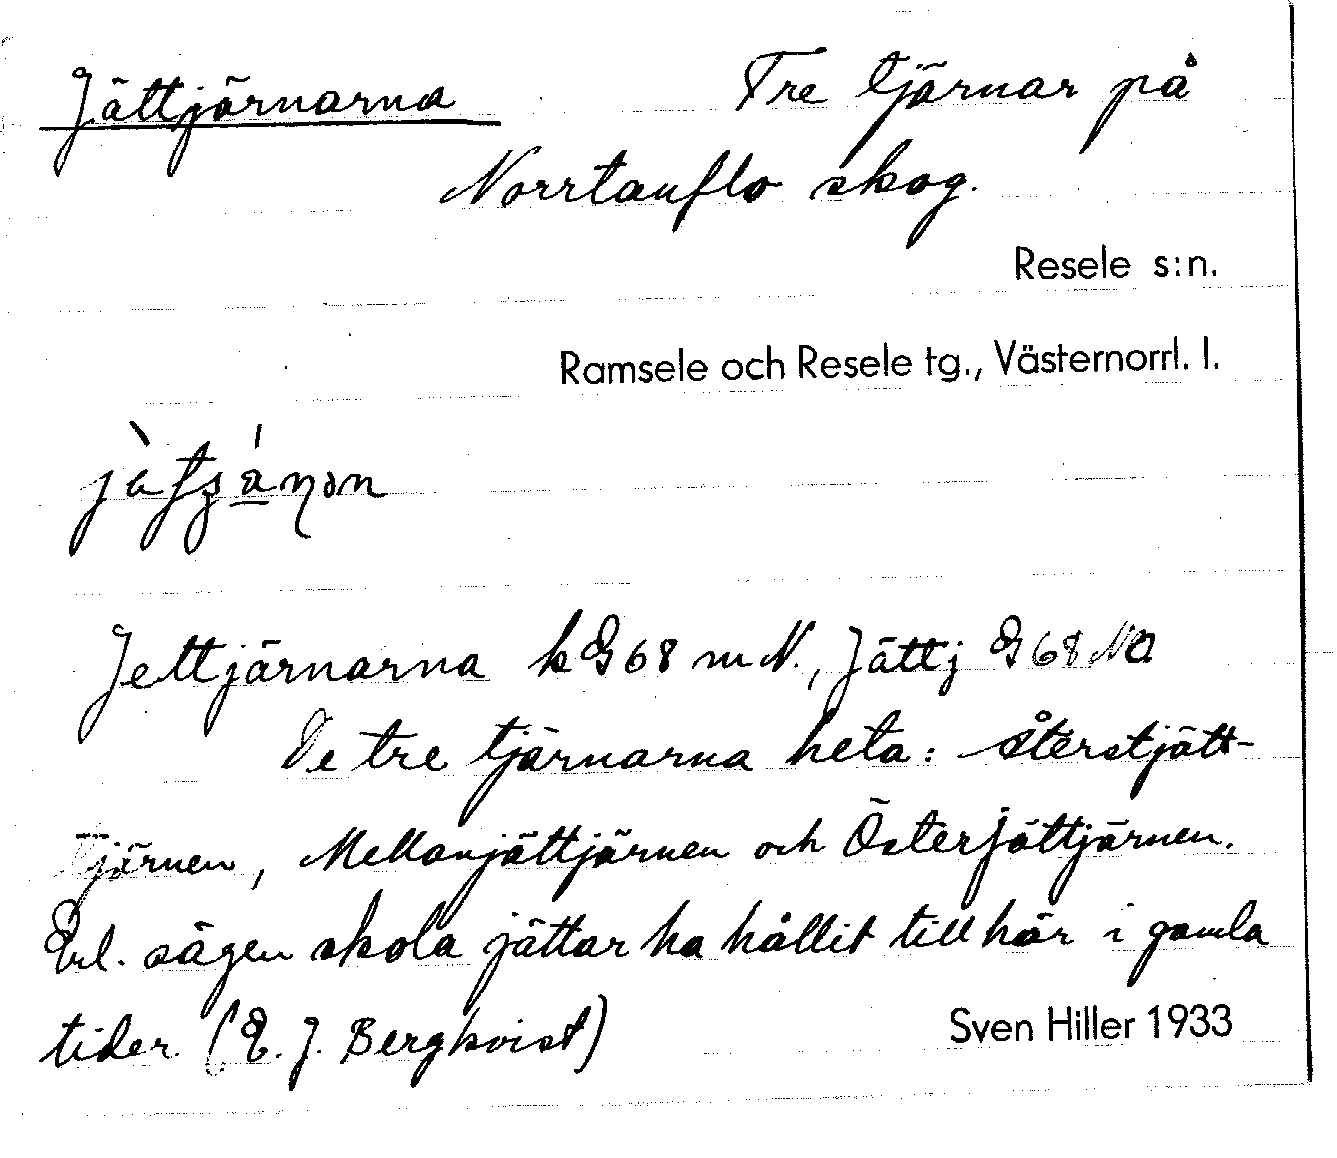 Jättjärnarna Tre tjärnar på
Norrtanflo skog.
Resele s:n.
Ramsele och Resele tg., Västernorrl. l.
Jettjärnarna k G 68 m N., Jättj G 68 NO
De tre tjärnarna heta: Återstjätt-
tjärnen, Mellanjättjärnen och Österjättjärnen.
Enl. sägen skola jättar ha hållit till här i gamla
tider. (E. J. Bergkvist) Sven Hiller 1933